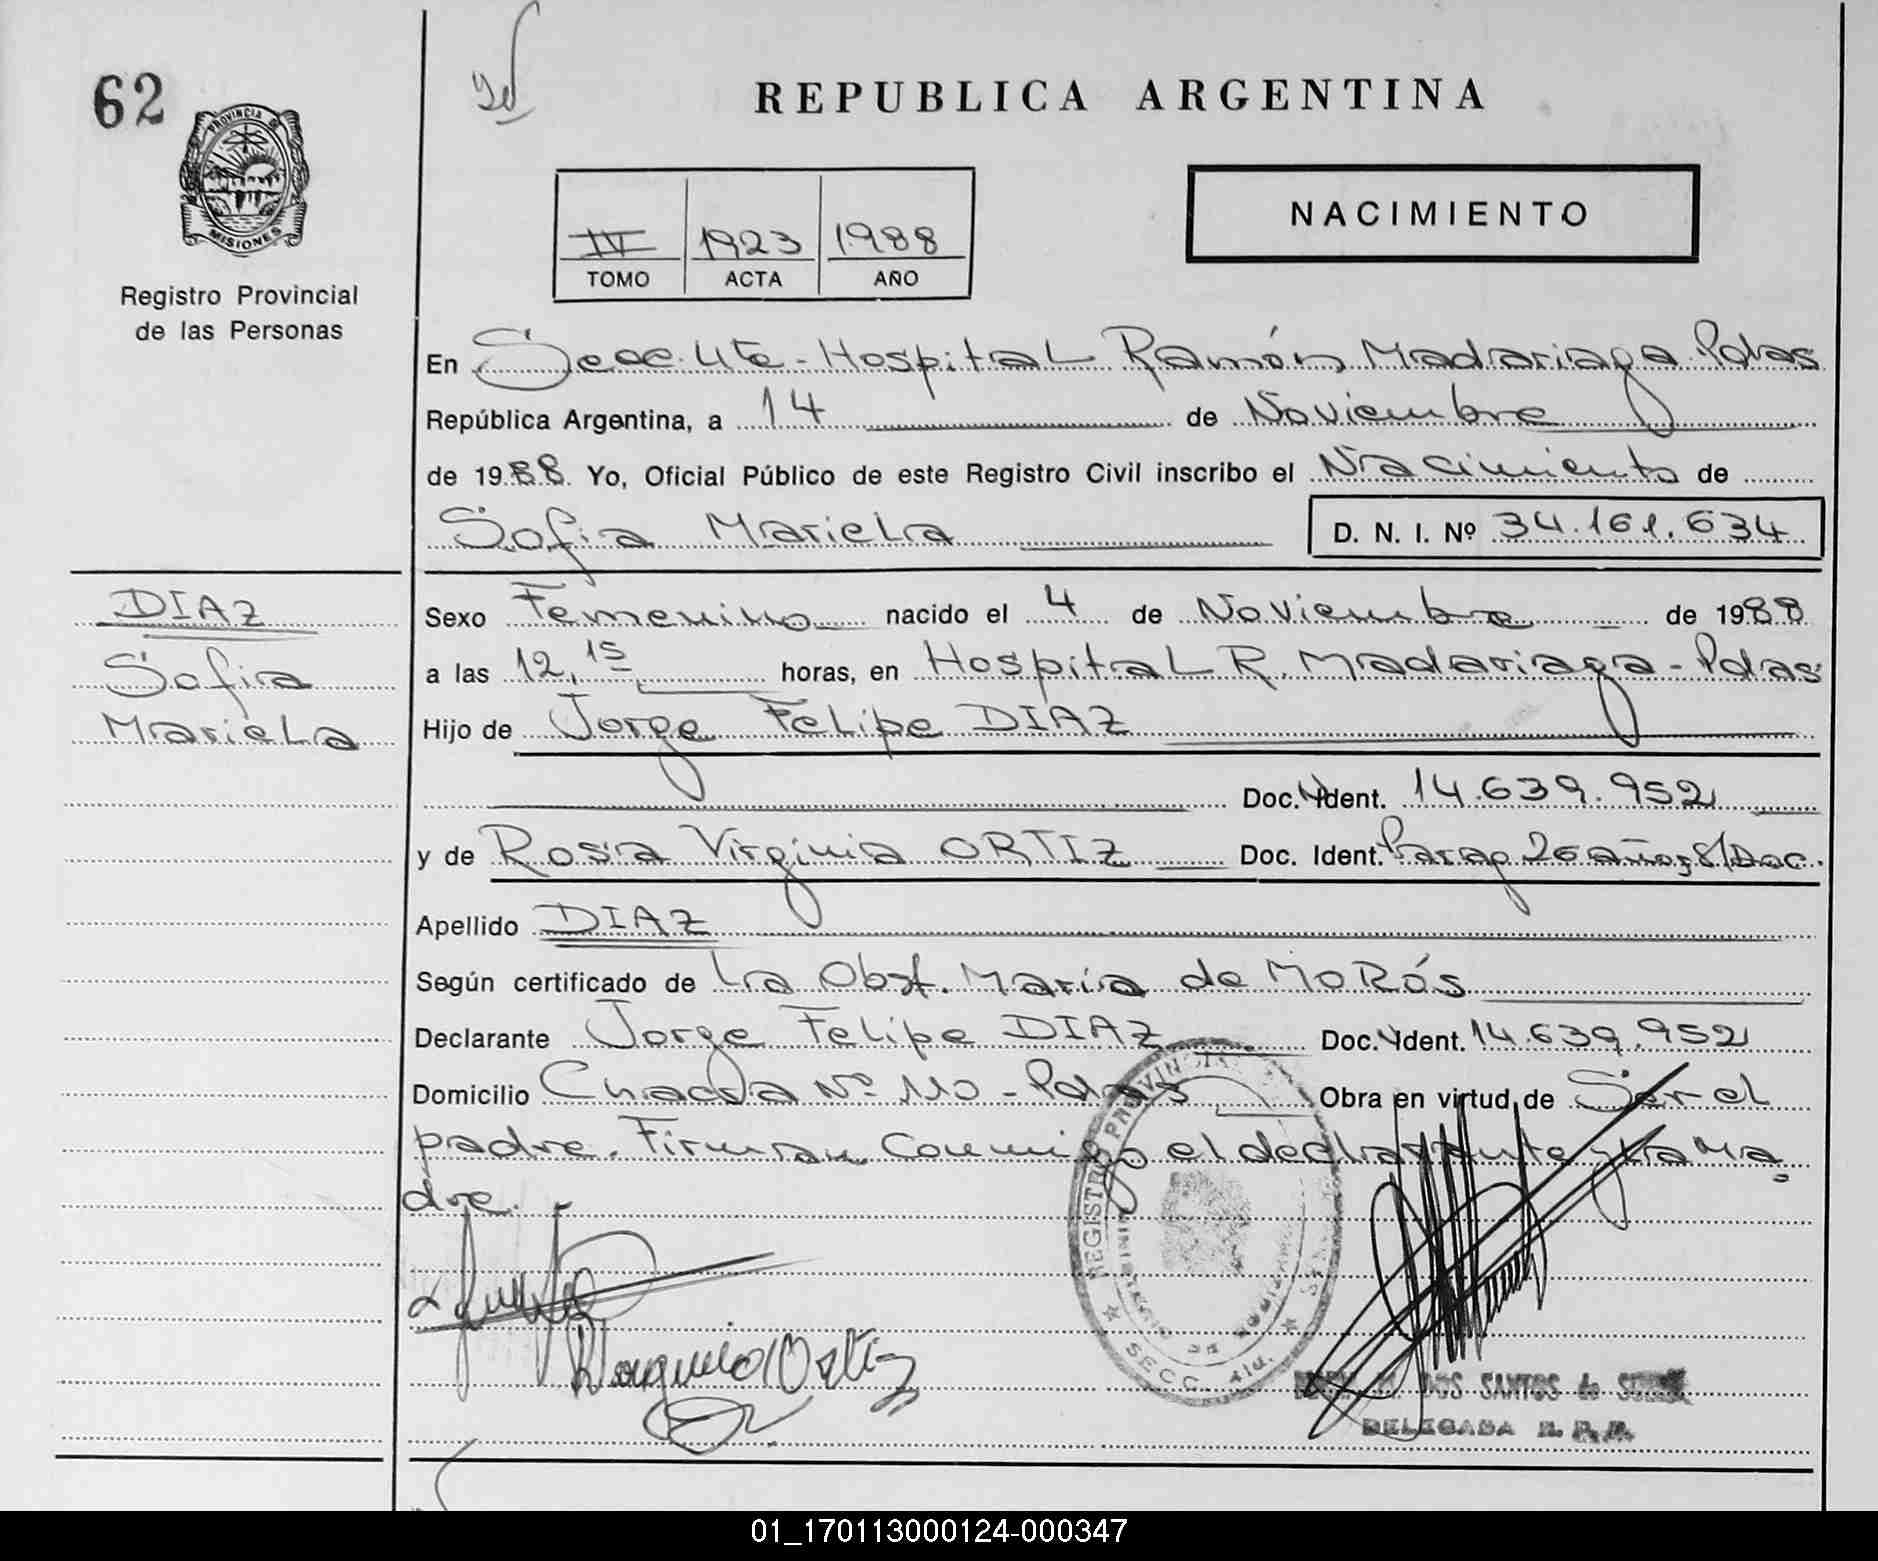 62
REPUBLICA ARGENTINA
PROVINCIA DE
MISIONES
Registro Provincial
de las Personas
IV 1923 1988
TOMO ACTA AÑO
NACIMIENTO
En Secc. 4ta - Hospital Ramón Madariaga Pdas
República Argentina, a 14 de Noviembre
de 1988. Yo, Oficial Público de este Registro Civil inscribo el Nacimiento de
Sofia Mariela D. N. I. Nº 34.161.634
DIAZ
Sofia
Mariela
Sexo Femenino nacido el 4 de Noviembre de 1988
a las 12,15 horas, en Hospital R. Madariaga - Pdas
Hijo de Jorge Felipe DIAZ
Doc. Ident. 14.639.952
y de Rosa Virginia ORTIZ Doc. Ident. Parag 26 años S/Doc.
Apellido DIAZ
Según certificado de La Obst. Maria de MoRós
Declarante Jorge Felipe DIAZ Doc. Ident. 14.639.952
Domicilio Chacra Nº 110 - Pdas Obra en virtud de Ser el
padre. Firman conmigo el declarante y la ma
dre.
REGISTRO PROVINCIAL
SECC. 4ta.
Ortiz
DOS SANTOS de
DELEGADA R. P. P.
01_170113000124-000347